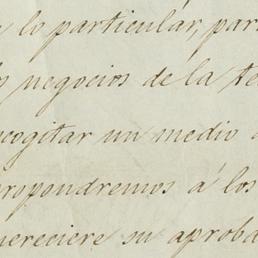 lo particular, par
negocios de la te
cogitar un medio
propondremos á los
mereciere su aproba